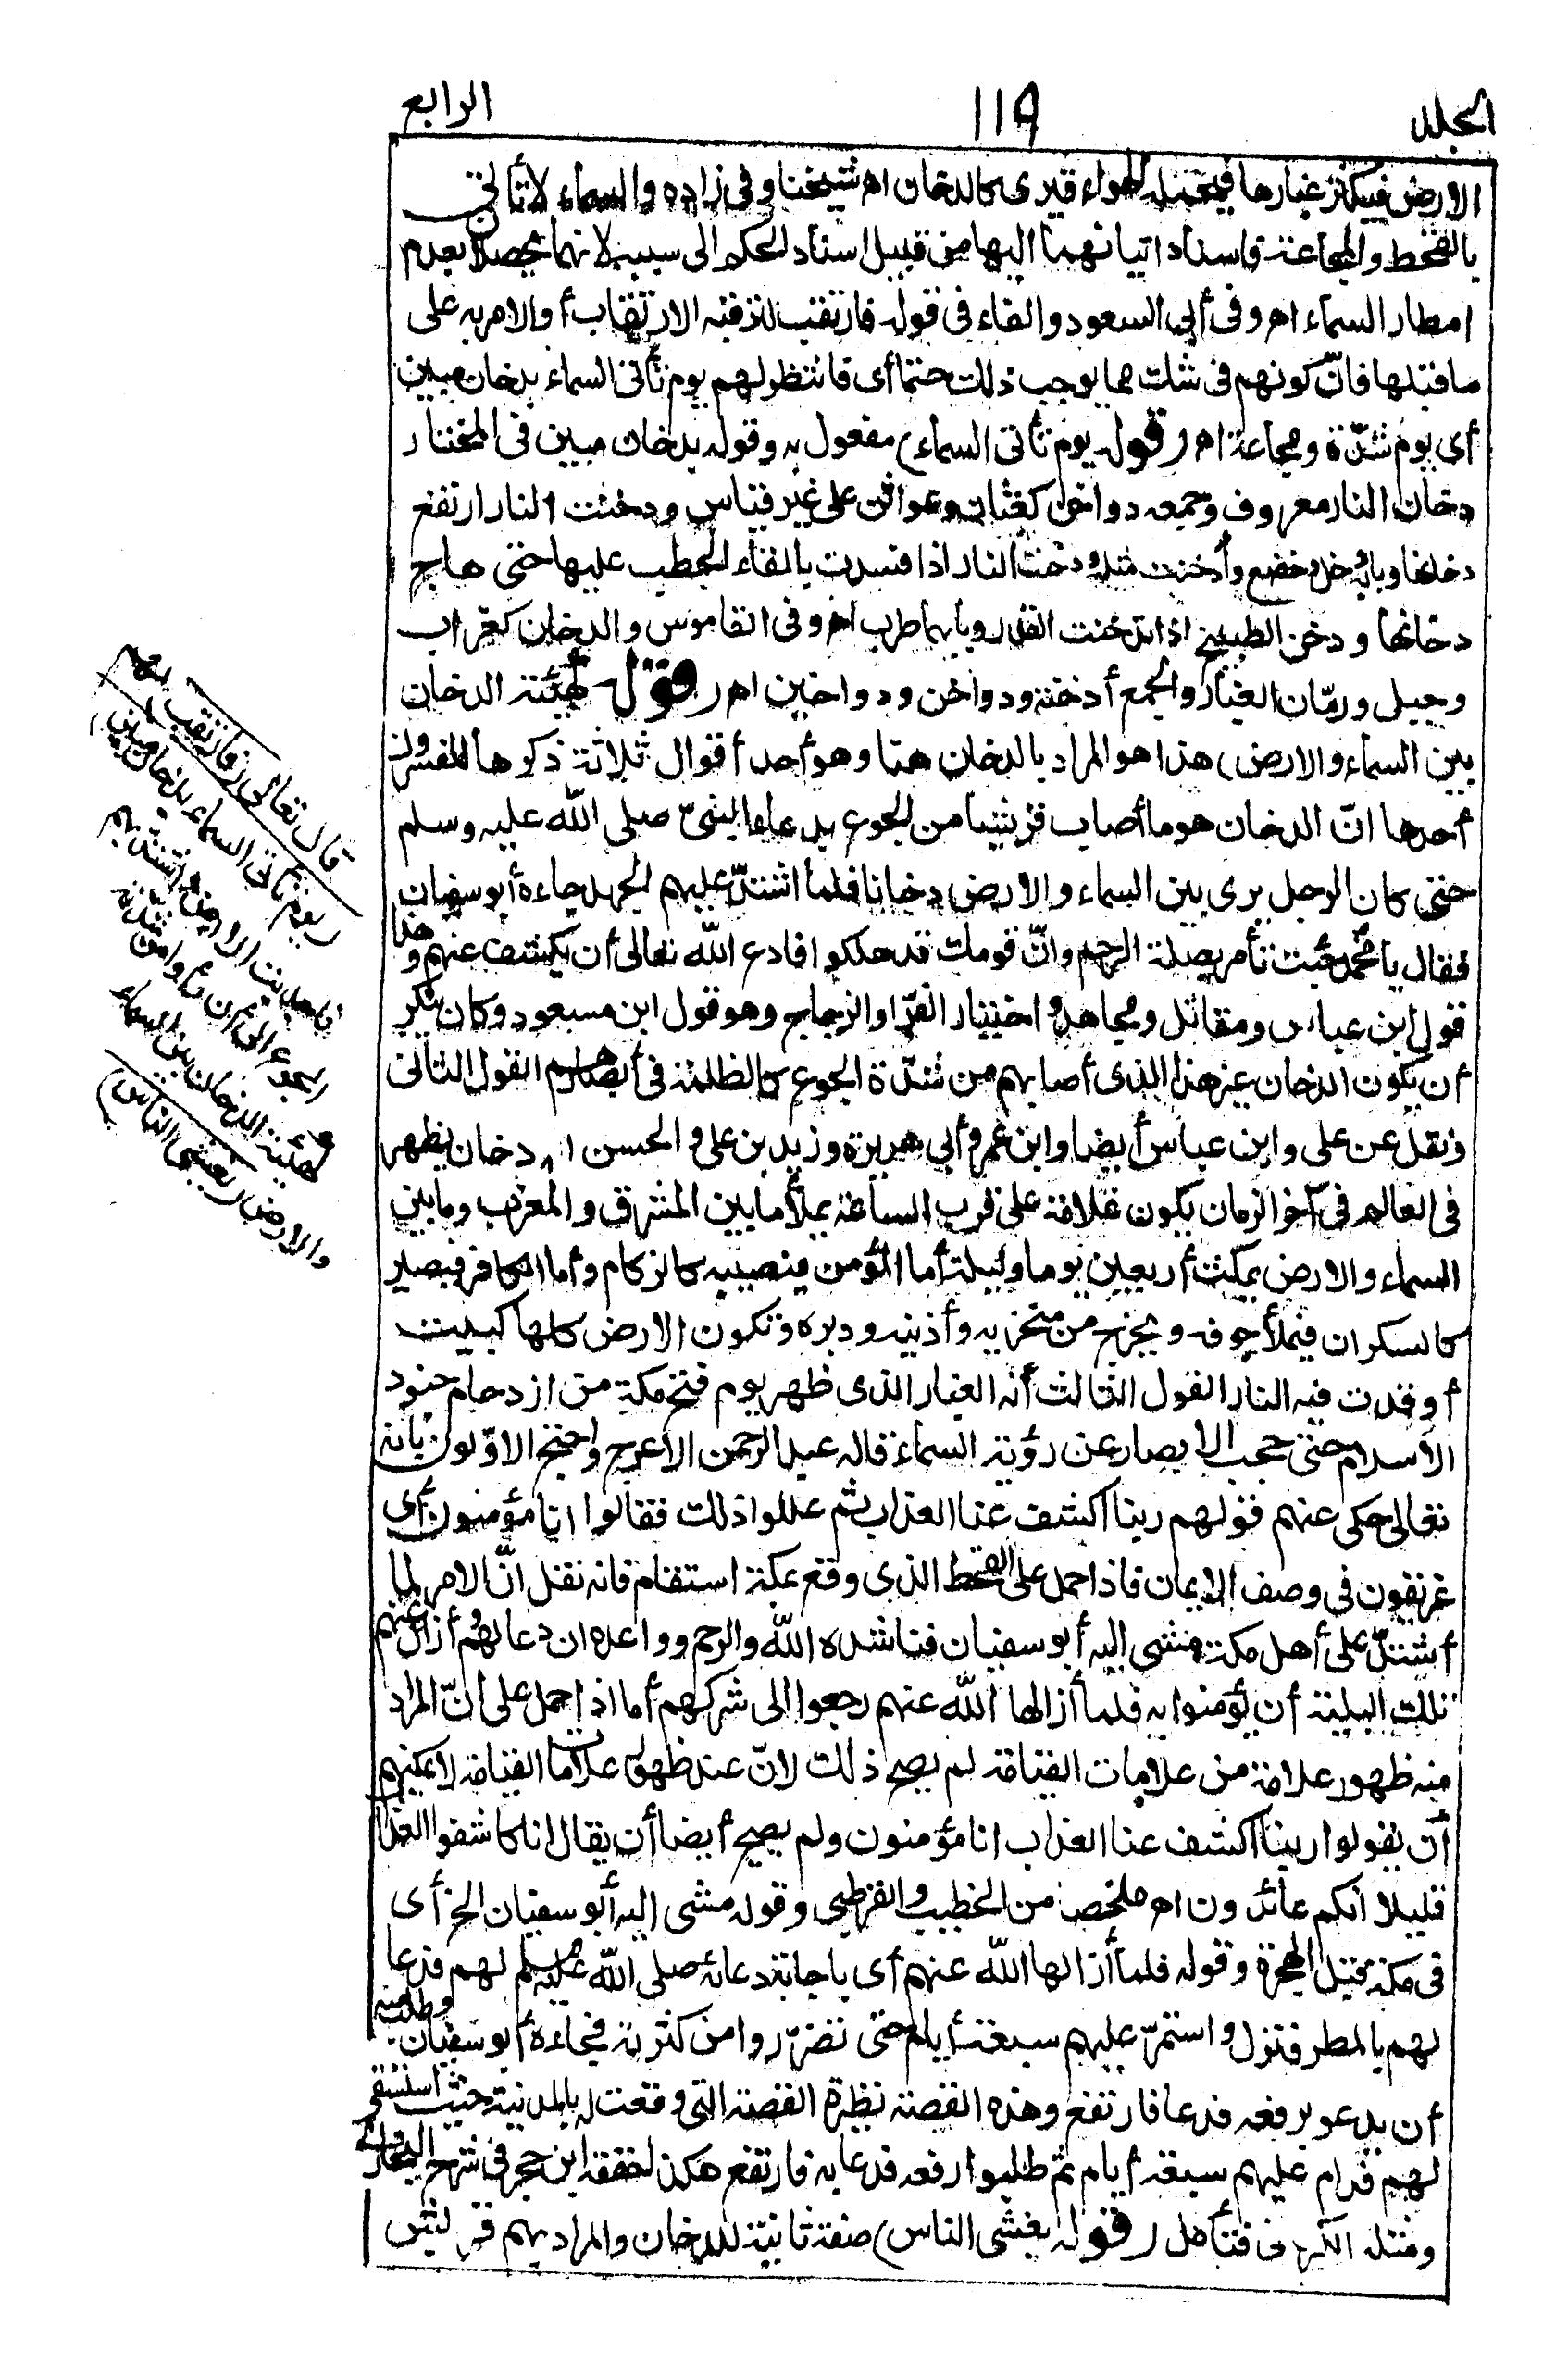 المجلد
١١٩
الرابع
الارض فيكثر غبارها فيحمله الهواء فيرى كالدخان اهـ شيخنا وفى زاده والسماء لا تأتى
بالقحط والمجاعة واسناد اتيانهما اليها من قبيل اسناد الحكم الى سببه لانهما يحصلا بعدم
امطار السماء اهـ وفى أبى السعود والفاء فى قوله فارتقب لترتيب الارتقاب أو الامر به على
ما قبلها فانّ كونهم فى شك مما يوجب ذلك حتما أى فانتظر لهم يوم تأتى السماء بدخان مبين
أى يوم شدّة ومجاعة اهـ (قوله يوم تأتى السماء) مفعول به وقوله بدخان مبين فى المختار
دخان النار معروف وجمعه دواخن كعثان وعواثن على غير قياس ودخنت النار ارتفع
دخانها وبابه دخل وخضع وأدخنت مثله ودخنت النار اذا فسدت بالقاء الحطب عليها حتى هاج
دخانها ودخن الطبيخ اذا تدخنت القدر وبابهما طرب اهـ وفى القاموس والدخان كغراب
وجبل ورمّان العثار والجمع أدخنة ودواخن ودواخين اهـ (قوله كهيئة الدخان
بين السماء والارض) هذا هو المراد بالدخان هنا وهو أحد أقوال ثلاثة ذكرها المفسرون
أحدها انّ الدخان هو ما أصاب قريشا من الجوع بدعاء النبىّ صلى الله عليه وسلم
حتى كان الرجل يرى بين السماء والارض دخانا فلما اشتدّ عليهم الجهد جاءه أبو سفيان
فقال يا محمد جئت تأمر بصلة الرحم وانّ قومك قد هلكوا فادع الله تعالى أن يكشف عنهم وهذا
قول ابن عباس ومقاتل ومجاهد واختيار الفرّاء والزجاج وهو قول ابن مسعود وكان ينكر
أن يكون الدخان غير هذا الذى أصابهم من شدّة الجوع كالظلمة فى أبصارهم القول الثانى
ونقل عن على وابن عباس أيضا وابن عمر وأبى هريرة وزيد بن على والحسن انه دخان يظهر
فى العالم فى آخر الزمان يكون علامة على قرب الساعة يملأ ما بين المشرق والمغرب وما بين
السماء والارض يمكث أربعين يوما وليلة أما المؤمن فيصيبه كالزكام وأما الكافر فيصير
كالسكران فيملأ جوفه ويخرج من منخريه وأذنيه ودبره وتكون الارض كلها كبيت
أوقدت فيه النار القول الثالث أنه الغبار الذى ظهر يوم فتح مكة من ازدحام جنود
الاسلام حتى حجب الابصار عن رؤية السماء قاله عبد الرحمن الاعرج واحتج الاوّلون بانه
تعالى حكى عنهم قولهم ربنا اكشف عنا العذاب ثم عللوا ذلك فقالوا انا مؤمنون أى
عريقون فى وصف الايمان فاذا حمل على القحط الذى وقع بمكة استقام فانه نقل انّ الامر لما
اشتدّ على أهل مكة مشى اليه أبو سفيان فناشده الله والرحم وواعده ان دعا لهم وأزال عنهم
تلك البلية أن يؤمنوا به فلما أزالها الله عنهم رجعوا الى شركهم أما اذا حمل على أنّ المراد
منه ظهور علامة من علامات القيامة لم يصح ذلك لانّ عند ظهور علامات القيامة لا يمكنهم
أن يقولوا ربنا اكشف عنا العذاب انا مؤمنون ولم يصح أيضا أن يقال انا كاشفوا العذاب
قليلا انكم عائدون اهـ ملخصا من الخطيب والقرطبى وقوله مشى اليه أبو سفيان الخ أى
فى مكة قبل الهجرة وقوله فلما أزالها الله عنهم أى باجابة دعائه صلى الله عليه وسلم لهم فدعا
لهم بالمطر فنزل واستمرّ عليهم سبعة أيام حتى تضرّروا من كثرته فجاءه أبو سفيان وطلب منه
أن يدعو برفعه فدعا فارتفع وهذه القصة نظيرة القصة التى وقعت له بالمدينة حيث استسقى
لهم فدام عليهم سبعة أيام ثم طلبوا رفعه فدعا به فارتفع هكذا حققه ابن حجر فى شرح البخارى
ومثله الكرمانى فتأمل (قوله يغشى الناس) صفة ثانية للدخان والمراد بهم قريش
قال تعالى (فارتقب) لهم
(يوم تأتى السماء بدخان مبين)
فاجدبت الارض واشتد بهم
الجوع الى أن رأوا من شدّته
كهيئة الدخان بين السماء
والارض (يغشى الناس)